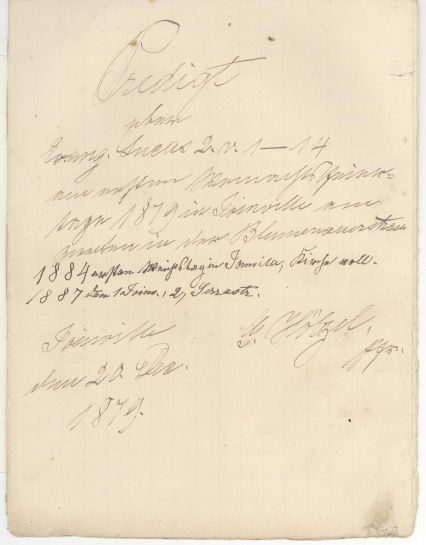 Predigt
über
Evang. Lucas 2. v. 1 – 14
am ersten Weihnachtsfeier-
tage 1879 in Joinville am
zweiten in der Blumenauerstrasse
1884 ersten Weihnachtstag in Joinville, Kirche voll.
1887 den 1 Joinv., 2, Serrastr.
Joinville
den 20. Dec.
1879.
G. Hölzel,
Pfr.